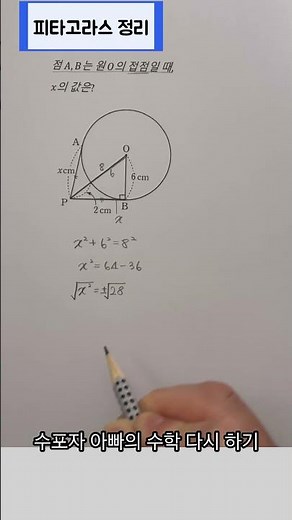 피타고라스 정리
점 A, B는 원 O의 접점일 때,
x의 값은?
A
O
8
6
x cm
6 cm
P
B
2 cm
x
x² + 6² = 8²
x² = 64 - 36
√x² = ±√28
수포자 아빠의 수학 다시 하기